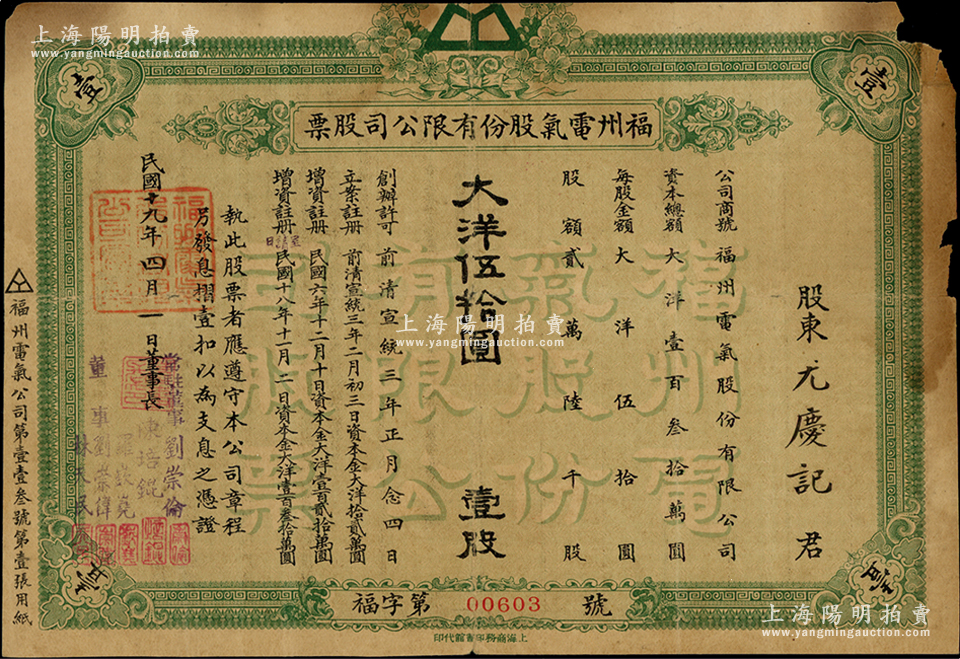 上海陽明拍賣
www.yangmingauction.com
壹
壹
福州電氣股份有限公司股票
股東尤慶記君
公司商號 福州電氣股份有限公司
資本總額 大洋壹百叁拾萬圓
每股金額 大洋伍拾圓
股額貳萬陸千股
大洋伍拾圓 壹股
創辦許可 前清宣統三年正月念四日
立案註冊 前清宣統三年二月初三日資本金大洋拾貳萬圓
增資註冊 民國六年十二月十日資本金大洋壹百貳拾萬圓
增資註冊 民國十八年十一月二日資本金大洋壹百叁拾萬圓
執此股票者應遵守本公司章程
另發息摺壹扣以為支息之憑證
民國十九年四月一日董事長 陳培錕
常駐董事劉崇倫
董事劉崇偉
福州電氣股份有限公司股票
上海陽明拍賣
www.yangmingauction.com
福州電氣公司第壹壹叁號第壹張用紙
壹
壹
福字第 00603 號
上海商務印書館代印
上海陽明拍賣
www.yangmingauction.com